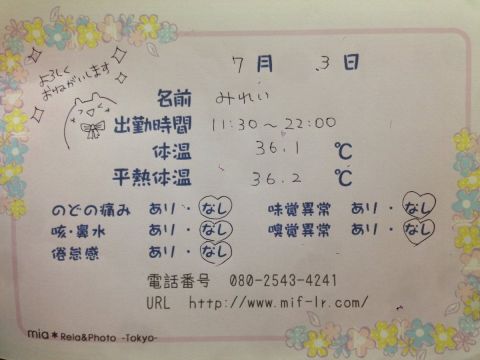 よろしく
おねがいします
7月 3日
名前 みれい
出勤時間 11:30～22:00
体温 36.1 ℃
平熱体温 36.2 ℃
のどの痛み あり・なし 味覚異常 あり・なし
咳・鼻水 あり・なし 嗅覚異常 あり・なし
倦怠感 あり・なし
電話番号 080-2543-4241
URL http://www.mif-lr.com/
mia＊Rela&Photo -Tokyo-